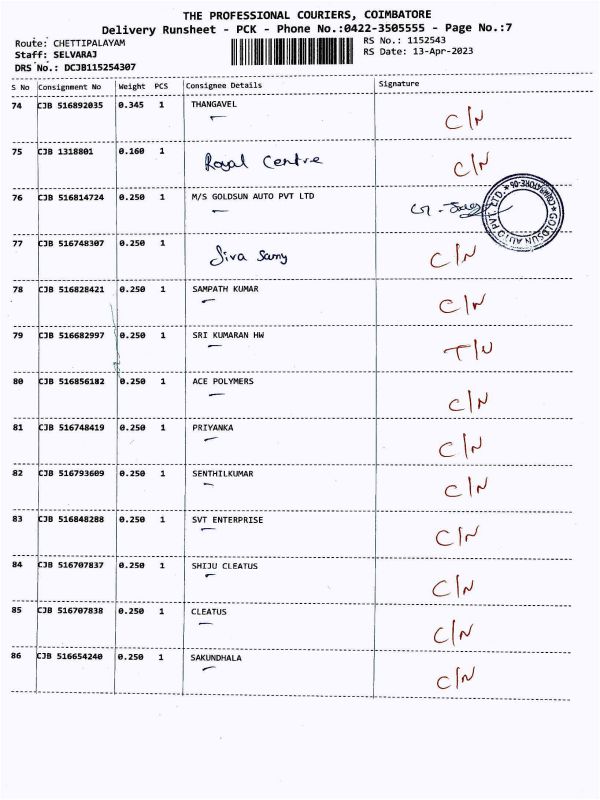 THE PROFESSIONAL COURIERS, COIMBATORE
Delivery Runsheet - PCK - Phone No.:0422-3505555 - Page No.:7
Route: CHETTIPALAYAM RS No.: 1152543
Staff: SELVARAJ RS Date: 13-Apr-2023
DRS No.: DCJB115254307
S No Consignment No Weight PCS Consignee Details Signature
74 CJB 516892035 0.345 1 THANGAVEL C/N
75 CJB 1318801 0.160 1 Royal Centre C/N
76 CJB 516814724 0.250 1 M/S GOLDSUN AUTO PVT LTD
GOLDSUN AUTO PVT. LTD. * COIMBATORE-06 *
77 CJB 516748307 0.250 1 Siva Samy C/N
78 CJB 516828421 0.250 1 SAMPATH KUMAR C/N
79 CJB 516682997 0.250 1 SRI KUMARAN HW T/U
80 CJB 516856182 0.250 1 ACE POLYMERS C/N
81 CJB 516748419 0.250 1 PRIYANKA C/N
82 CJB 516793609 0.250 1 SENTHILKUMAR C/N
83 CJB 516848288 0.250 1 SVT ENTERPRISE C/N
84 CJB 516707837 0.250 1 SHIJU CLEATUS C/N
85 CJB 516707838 0.250 1 CLEATUS C/N
86 CJB 516654240 0.250 1 SAKUNDHALA C/N